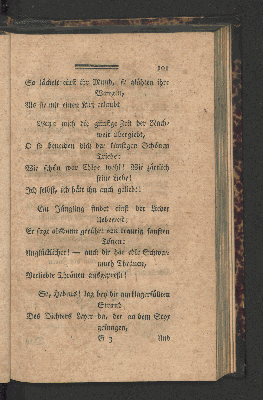 101
So lächelt einst ihr Mund, so glühten ihre
Wangen,
Als sie mir einen Kuß erlaubt
Wenn mich die günstge Zeit der Nach-
welt übergiebt,
O so beneiden dich der künftgen Schönen
Triebe:
Wie schön war Chloe wohl! Wie zärtlich
seine Liebe!
Ich selbst, ich hätt ihn auch geliebt!
Ein Jüngling findet einst der Leyer
Ueberrest;
Er sagt gerührt von traurig sanften
Tönen:
Unglücklicher! — auch dir hat edle Schwer-
muth Thränen,
Verliebte Thränen ausgepreßt!
So, Hebrus! lag bey dir am klagerfüllten
Strand
Des Dichters Leyer da, der an dem Styx
gesungen,
G 3
Und